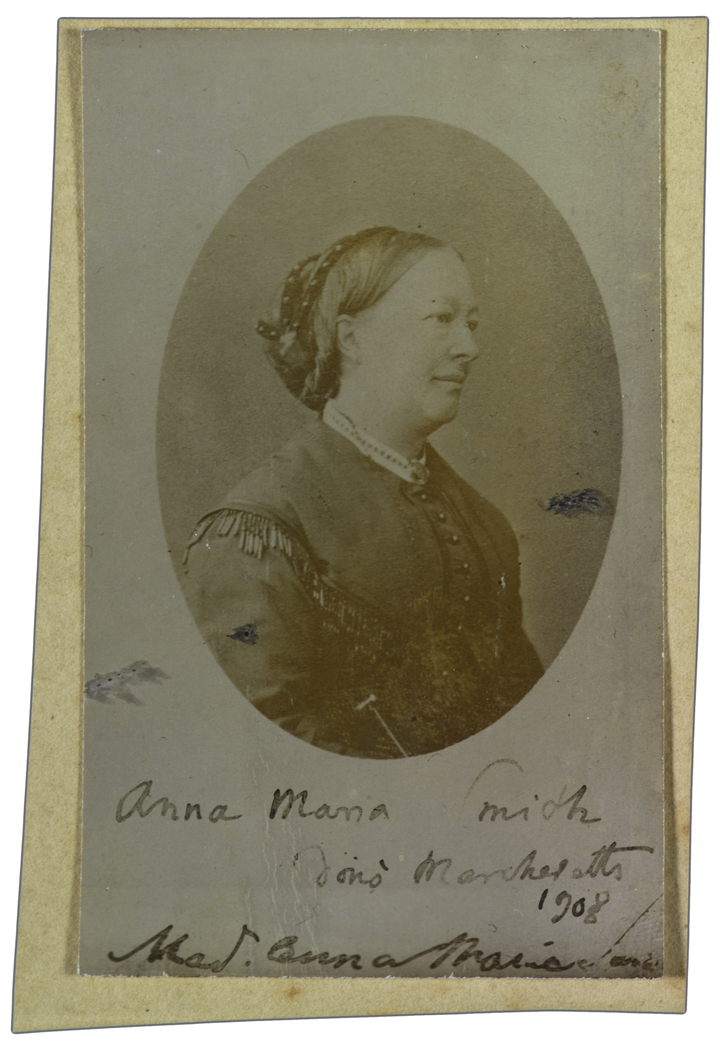 Anna Maria Smith
Donò Marchesetti
1908
Mad. Anna Maria